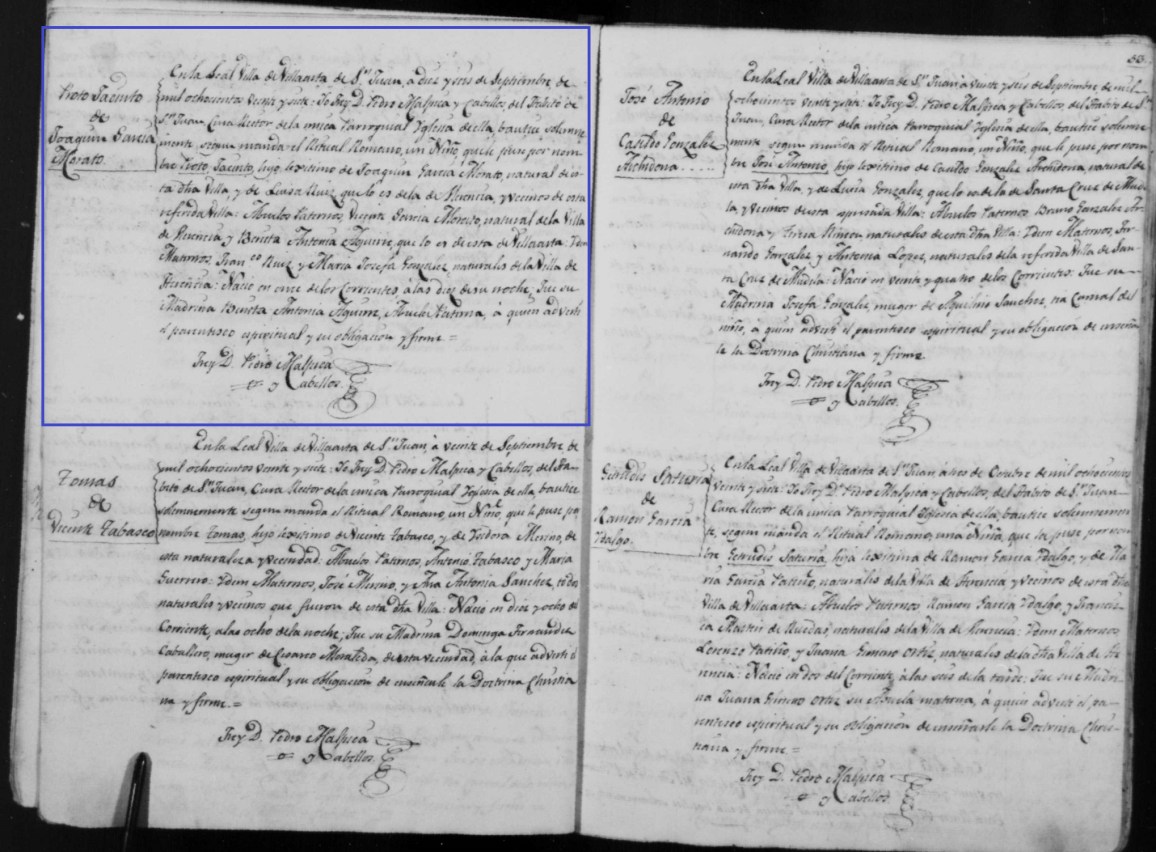 Proto Jacinto
de
Joaquin Garcia
Morato.
En la Leal Villa de Villaarta de Sn. Juan, á diez y seis de Septiembre, de
mil ochocientos veinte y siete: Yo Frey D. Pedro Malpica y Cabellos, del Habito de
Sn. Juan, Cura Rector de la unica Parroquial Yglesia de ella, bautice solemne
mente, segun manda el Ritual Romano, un Niño, que le puse por nom-
bre Proto, Jacinto, hijo legitimo de Joaquin Garcia Morato, natural de es-
ta dha Villa, y de Luisa Ruiz, que lo es de la de Herencia, y vecinos de esta
referida Villa: Abuelos Paternos, Vicente Garcia Morato, natural de la Villa
de Herencia, y Benita Antonia Aguirre, que lo es de esta de Villaarta: Ydem
Maternos, Franco Ruiz, y Maria Josefa Gonzalez, naturales de la Villa de
Herencia: Nacio en once de los Corrientes, a las diez de su noche; fue su
Madrina Benita Antonia Aguirre, Abuela Paterna, á quien adverti
el parentesco espiritual y su obligacion y firme =
Frey D. Pedro Malpica
y Cabellos.
Tomas
de
Vicente Tabasco
En la Leal Villa de Villaarta de Sn. Juan, á veinte de Septiembre, de
mil ochocientos veinte y siete: Yo Frey D. Pedro Malpica y Cabellos, del Ha-
bito de Sn. Juan, Cura Rector de la unica Parroquial Yglesia de ella, bautice
solemnemente segun manda el Ritual Romano, un Niño, que le puse por
nombre Tomas, hijo legitimo de Vicente Tabasco, y de Ysidora Merino, de
esta naturaleza y vecindad. Abuelos Paternos, Antonio Tabasco y Maria
Guerrero: Ydem Maternos, José Merino, y Ana Antonia Sanchez, todos
naturales y vecinos que fueron de esta dha Villa: Nacio en diez y ocho del
Corriente, a las ocho de la noche; Fue su Madrina Dominga Fernandez
Caballero, muger de Cesareo Moraleda, de esta vecindad, á la que adverti el
parentesco espiritual y su obligacion de enseñarle la Doctrina Christia
na y firme =
Frey D. Pedro Malpica
y Cabellos.
José Antonio
de
Casildo Gonzalez
Archidona.....
En la Leal Villa de Villaarta de Sn. Juan, á veinte y seis de Septiembre de mil
ochocientos veinte y siete: Yo Frey D. Pedro Malpica y Cabellos, del Habito de Sn.
Juan, Cura Rector de la unica Parroquial Yglesia de ella, bautice solemne
mente segun manda el Ritual Romano, un Niño, que le puse por nom
bre José Antonio, hijo legitimo de Casildo Gonzalez Archidona, natural de
esta dha Villa, y de Lucia Gonzalez, que lo es de la de Santa Cruz de Mude
la, y vecinos de esta expresada Villa: Abuelos Paternos, Bruno Gonzalez Ar-
chidona y naturales de esta dha Villa: Ydem Maternos, Fer-
nando Gonzalez y Antonia Lopez, naturales de la referida Villa de San-
ta Cruz de Mudela: Nacio en veinte y quatro de los Corrientes: Fue su
Madrina Josefa Gonzalez, muger de Aquilino Sanchez, tia Carnal del
niño, á quien adverti el parentesco espiritual y su obligacion de enseñar
le la Doctrina Christiana y firme
Frey D. Pedro Malpica
y Cabellos.
Saturia
de
Ramon Garcia
Ydalgo.
En la Leal Villa de Villaarta de Sn. Juan á tres de Octubre de mil ochocientos
veinte y siete: Yo Frey D. Pedro Malpica y Cabellos, del Habito de Sn. Juan
Cura Rector de la unica Parroquial Yglesia de ella, bautice solemnemen
te, segun manda el Ritual Romano, una Niña, que la puse por nom
bre Saturia, hija legitima de Ramon Garcia Ydalgo, y de Ma
ria Garcia Patiño, naturales de la Villa de Herencia y vecinos de esta dha
Villa de Villaarta: Abuelos Paternos, Ramon Garcia Ydalgo, y Francis-
ca Martin de Ruedas, naturales de la Villa de Herencia: Ydem Maternos,
Lorenzo Patiño, y Juana Gimeno Ortiz, naturales de la dha Villa de He
rencia: Nacio en dos del Corriente, á las seis de la tarde; Fue su Madri-
na Juana Gimeno Ortiz su Abuela materna, á quien adverti el pa-
rentesco espiritual y su obligacion de enseñarle la Doctrina Chris-
tiana y firme =
Frey D. Pedro Malpica
y Cabellos.